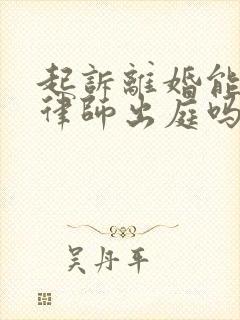 起訴離婚能
律師出庭吗
吴丹平